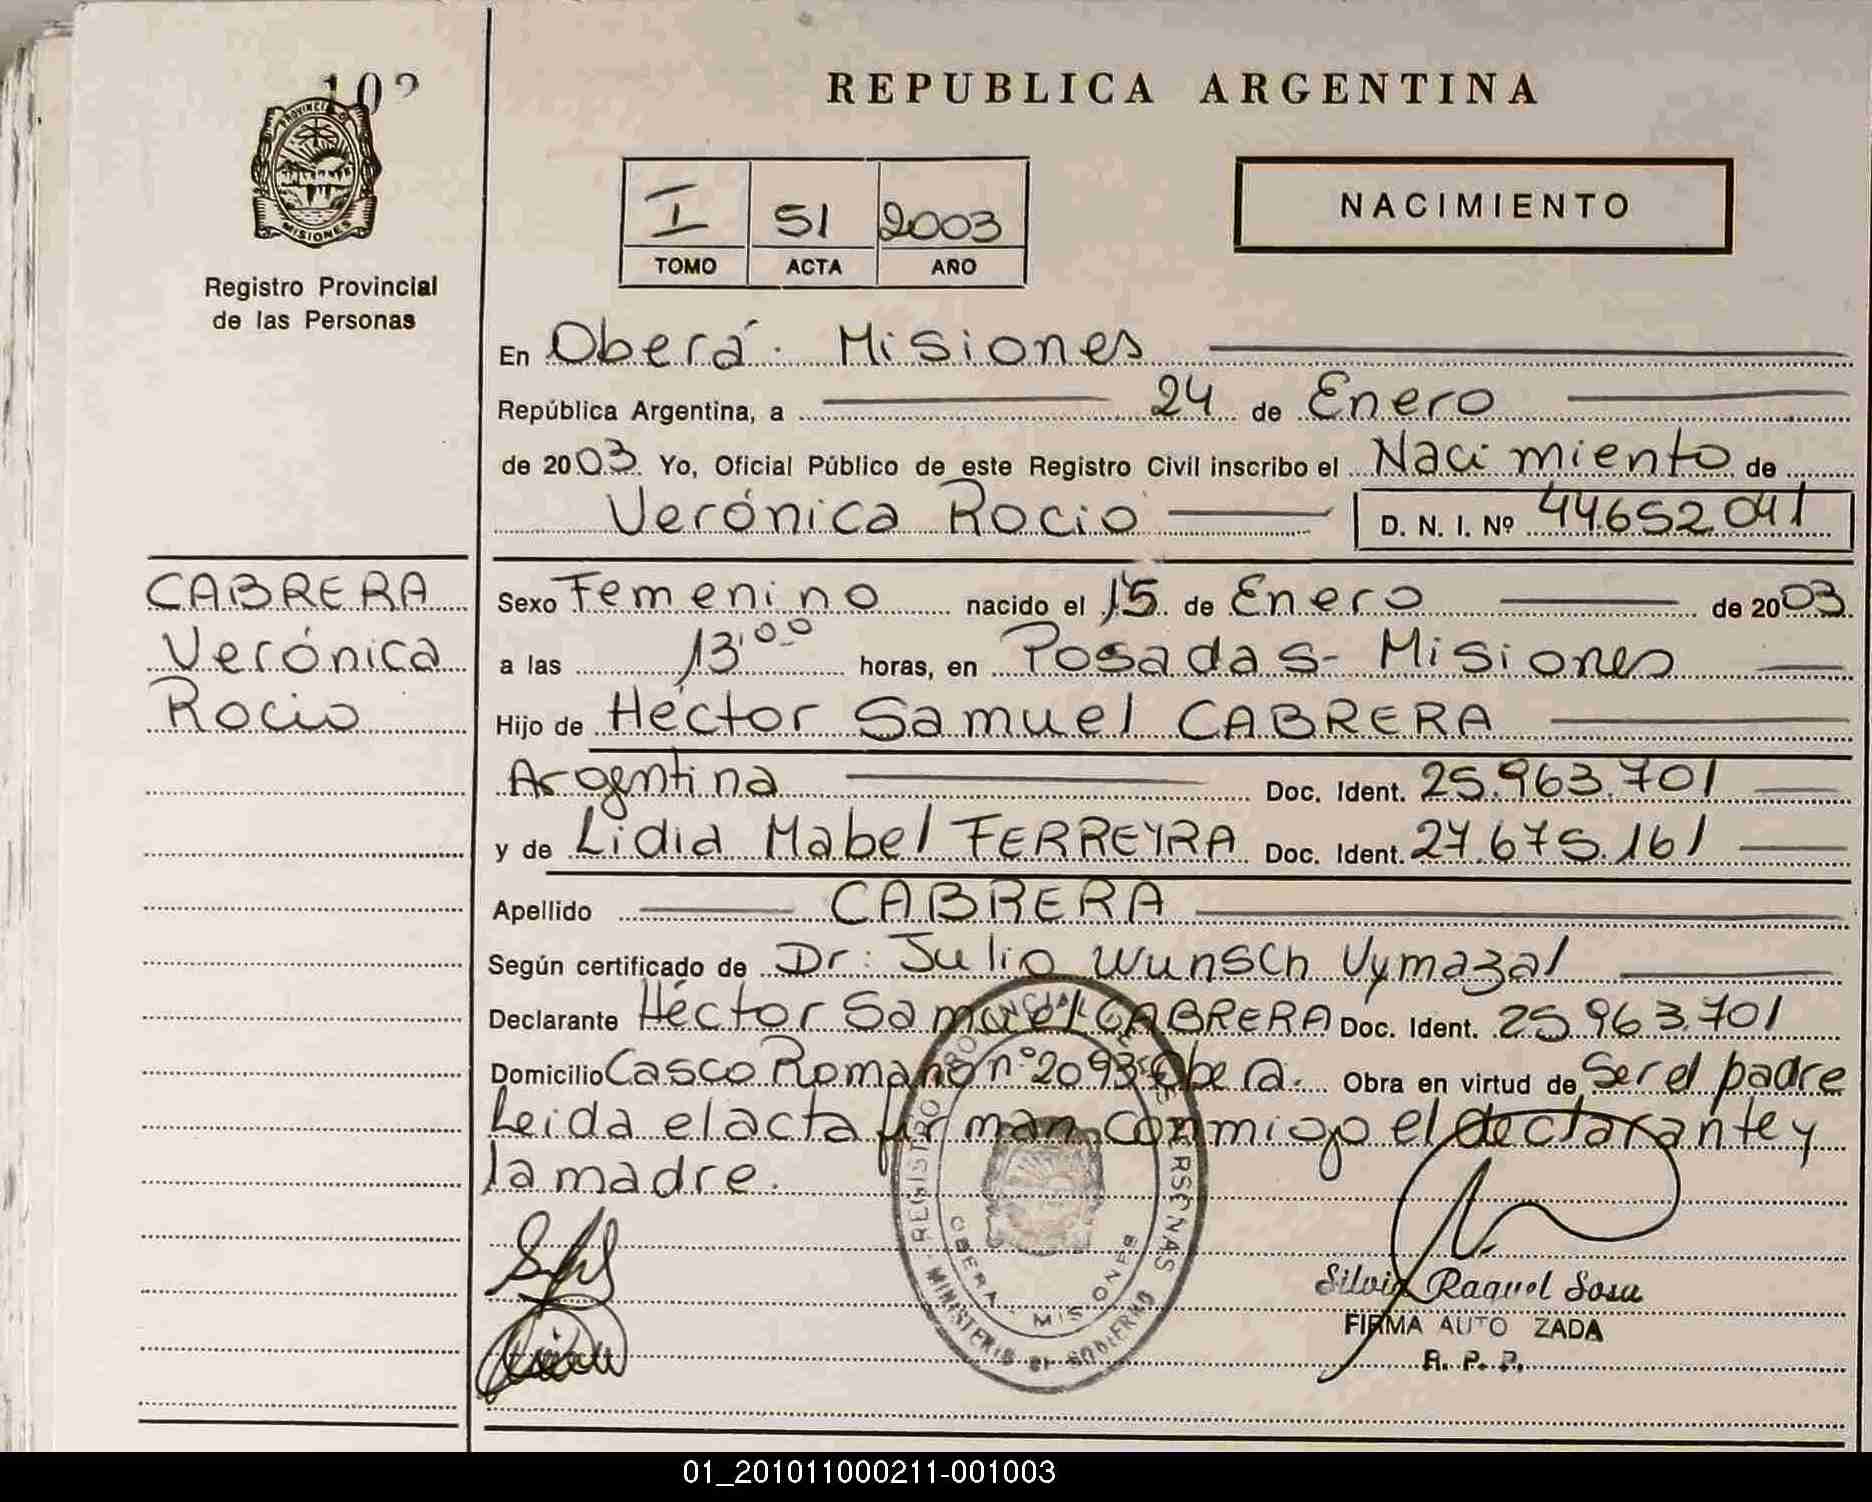 102
PROVINCIA DE
MISIONES
Registro Provincial
de las Personas
REPUBLICA ARGENTINA
I 51 2003
TOMO ACTA AÑO
NACIMIENTO
En Oberá. Misiones
República Argentina, a 24 de Enero
de 2003. Yo, Oficial Público de este Registro Civil inscribo el Nacimiento de
Verónica Rocio D. N. I. Nº 44.652.041
CABRERA
Verónica
Rocio
Sexo Femenino nacido el 15 de Enero de 2003.
a las 13'00 horas, en Posadas- Misiones
Hijo de Héctor Samuel CABRERA
Argentina Doc. Ident. 25.963.701
y de Lidia Mabel FERREYRA Doc. Ident. 27.675.161
Apellido CABRERA
Según certificado de Dr: Julio Wunsch Vymazal
Declarante Héctor Samuel CABRERA Doc. Ident. 25.963.701
Domicilio Casco Romano nº 2093 Oberá. Obra en virtud de Ser el padre
Leida el acta firman conmigo el declarante y
la madre.
REGISTRO PROVINCIAL DE PERSONAS
OBERA - MISIONES
MINISTERIO DE GOBIERNO
Silvia Raquel Sosa
FIRMA AUTO ZADA
R. P. P.
01_201011000211-001003